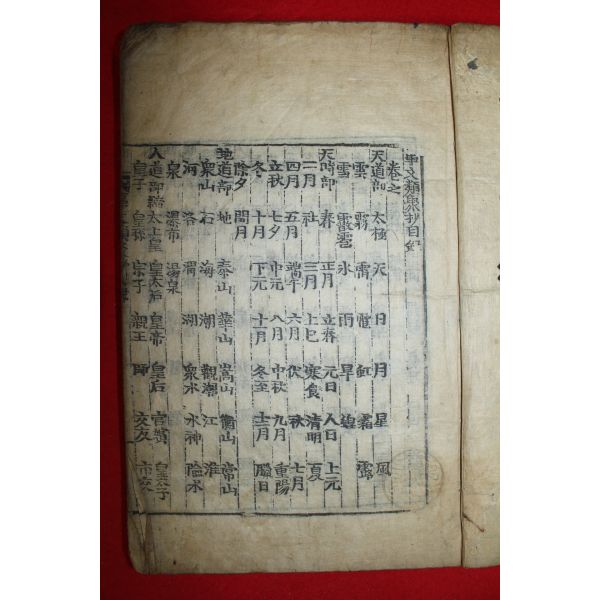 事文類聚抄目錄
卷之
天道部 太極 天 日 月 星 風
雲 霧 電 虹 霜 露
雪 霰雹 氷 雨 旱
天時部 春 正月 立春 元日 人日 上元
二月 社 三月 上巳 寒食 清明 夏
四月 五月 端午 六月 伏 秋 七月
立秋 七夕 中元 八月 中秋 九月 重陽
冬 十月 下元 十一月 冬至 十二月 臘日
除夕 閏月
地道部 地 泰山 華山 嵩山 衡山 常山
衆山 石 海 潮 觀潮 江 淮
河 洛 渭 湖 衆水 水神 臨水
泉 瀑布 湯泉
人道部 太上皇 皇太后 皇帝 皇后 宮嬪 皇太子
皇子 皇孫 宗子 親王 師 交友 市交